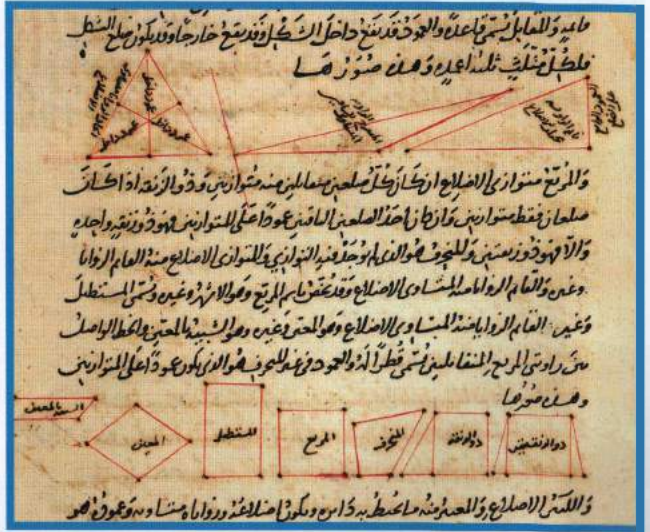 قاعدة والمقابل تسمى قاعدة والعمود قد يقع داخل الشكل وقد يقع خارجا وقد يكون ضلع الشكل
فلكل مثلث ثلثة اعمدة وهذه صورها
عمود داخل
عمود داخل
عمود داخل
والمربع متوازى الاضلاع ان كان كل ضلعين متقابلين منه متوازيين وذو الزنقة اذا كان
ضلعان فقط متوازيين وان كان احد الضلعين الباقيين عمودا على المتوازيين فهو ذو زنقة واحدة
والا فهو ذو زنقتين والمنحرف هو الذى لم يوجد فيه التوازي والمتوازى الاضلاع منه القايم الزوايا
وغيره والقايم الزوايا منه المتساوى الاضلاع وقد يخص باسم المربع وهو الاشهر وغيره ويسمى المستطيل
وغير القايم الزوايا منه المتساوى الاضلاع وهو المعين وغيره وهو الشبيه بالمعين والخط الواصل
بين زاويتى المربع المتقابلتين يسمى قطرا له والعمود فى غير المنحرف هو الذى يكون عمودا على المتوازيين
وهذه صورها
ذو الزنقتين
ذو الزنقة
المنحرف
المربع
المستطيل
المعين
الشبيه بالمعين
والكثير الاضلاع والمعتبر منه ما يحيط به دايرة ويكون اضلاعه وزواياه متساوية وعموده هو